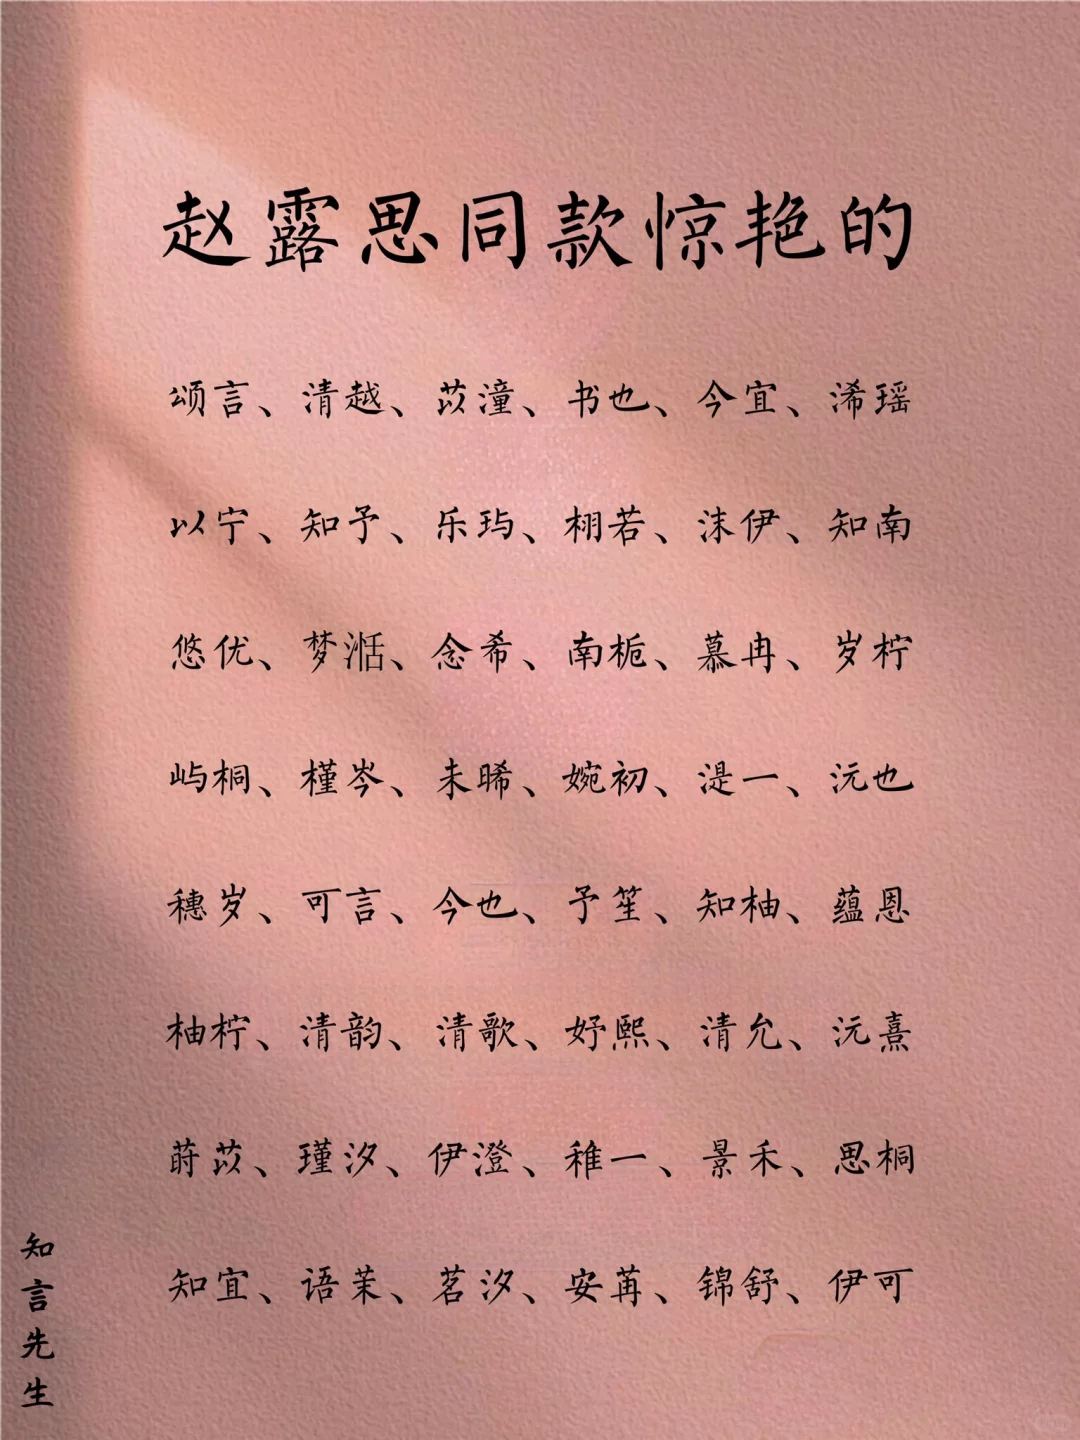 赵露思同款惊艳的
颂言、清越、苡潼、书也、今宜、浠瑶
以宁、知予、乐玙、栩若、沫伊、知南
悠优、梦湉、念希、南栀、慕冉、岁柠
屿桐、槿岑、未晞、婉初、湜一、沅也
穗岁、可言、今也、予笙、知柚、蕴恩
柚柠、清韵、清歌、妤熙、清允、沅熹
莳苡、瑾汐、伊澄、稚一、景禾、思桐
知宜、语茉、茗汐、安苒、锦舒、伊可
知言先生